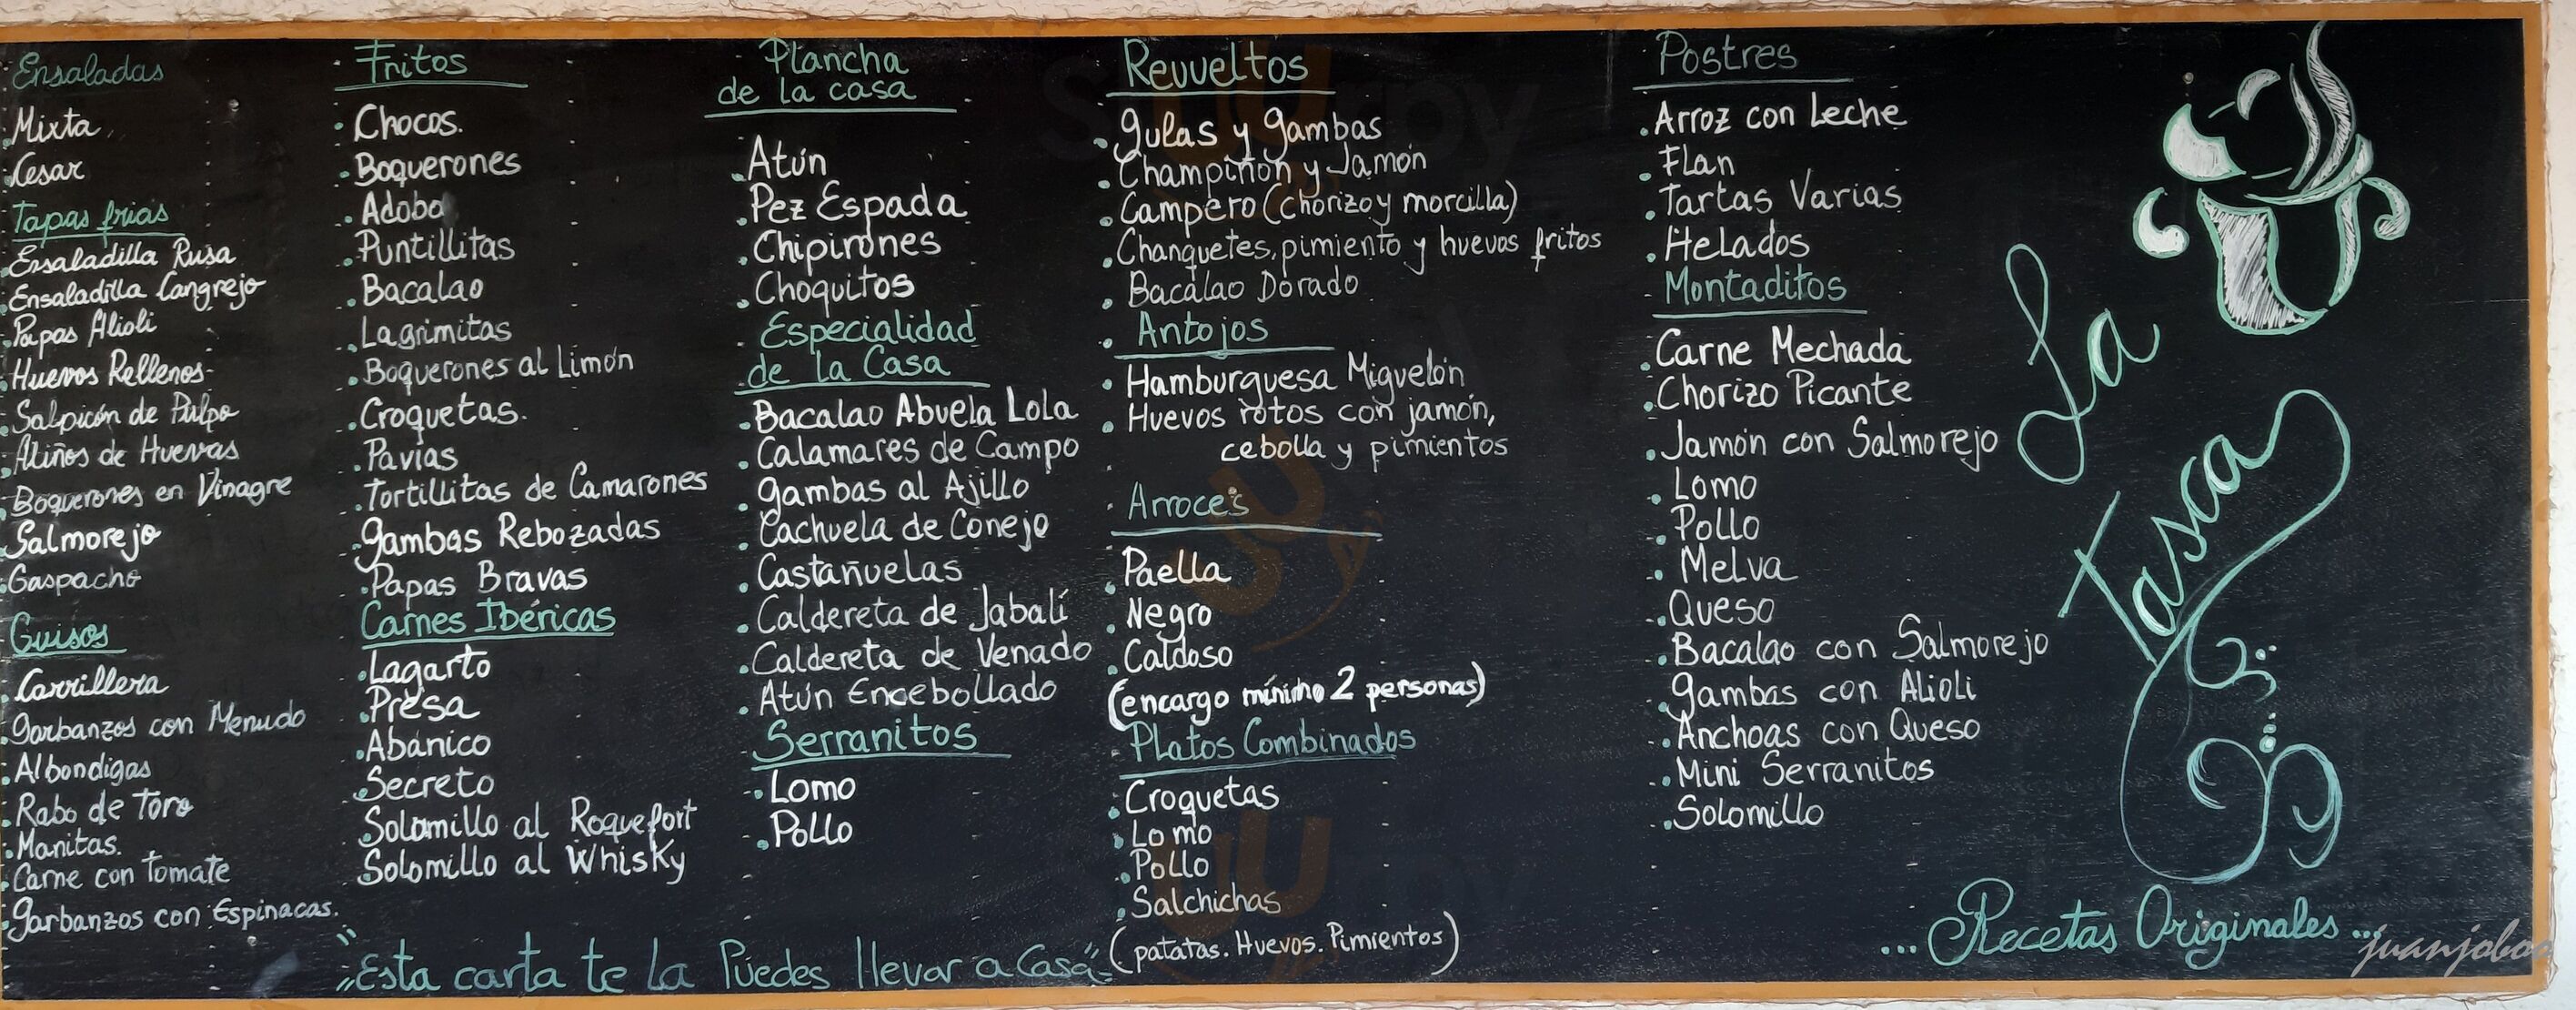 Ensaladas
.Mixta
.Cesar
Tapas frias
.Ensaladilla Rusa
.Ensaladilla Cangrejo
.Papas Alioli
.Huevos Rellenos
.Salpicón de Pulpo
.Aliños de Huevas
.Boquerones en Vinagre
.Salmorejo
.Gaspacho
Guisos
.Carrillera
.Garbanzos con Menudo
.Albondigas
.Rabo de Toro
.Manitas.
.Carne con tomate
.Garbanzos con Espinacas.
Fritos
.Chocos.
.Boquerones
.Adobo
.Puntillitas
.Bacalao
.Lagrimitas
.Boquerones al Limón
.Croquetas.
.Pavías
.Tortillitas de Camarones
.Gambas Rebozadas
.Papas Bravas
Carnes Ibéricas
.Lagarto
.Presa
.Abanico
.Secreto
.Solomillo al Roquefort
.Solomillo al Whisky
Plancha
de la casa
.Atún
.Pez Espada
.Chipirones
.Choquitos
Especialidad
de la Casa
.Bacalao Abuela Lola
.Calamares de Campo
.Gambas al Ajillo
.Cachuela de Conejo
.Castañuelas
.Caldereta de Jabalí
.Caldereta de Venado
.Atún Encebollado
Serranitos
.Lomo
.Pollo
Revueltos
.Gulas y gambas
.Champiñón y Jamón
.Campero (chorizo y morcilla)
.Chanquetes, pimiento y huevos fritos
.Bacalao Dorado
.Antojos
.Hamburguesa Miguelón
.Huevos rotos con jamón,
cebolla y pimientos
Arroces
.Paella
.Negro
.Caldoso
(encargo mínimo 2 personas)
Platos Combinados
.Croquetas
.Lomo
.Pollo
.Salchichas
(patatas. Huevos. Pimientos)
Postres
.Arroz con Leche
.Flan
.Tartas Varias
.Helados
Montaditos
.Carne Mechada
.Chorizo Picante
.Jamón con Salmorejo
.Lomo
.Pollo
.Melva
.Queso
.Bacalao con Salmorejo
.Gambas con Alioli
.Anchoas con Queso
.Mini Serranitos
.Solomillo
La
Tasca
"Esta carta te la Puedes llevar a Casa"
...Recetas Originales...
juanjoboo